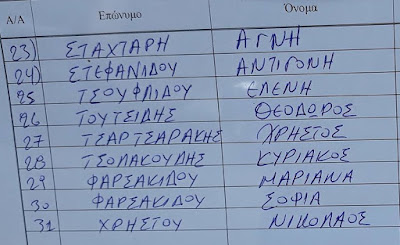 Α/Α Επώνυμο Όνομα
23) ΣΤΑΧΤΑΡΗ ΑΓΝΗ
24) ΣΤΕΦΑΝΙΔΟΥ ΑΝΤΙΓΟΝΗ
25 ΤΣΟΥΦΛΙΔΟΥ ΕΛΕΝΗ
26 ΤΟΥΤΣΙΔΗΣ ΘΕΟΔΩΡΟΣ
27 ΤΣΑΡΤΣΑΡΑΚΗΣ ΧΡΗΣΤΟΣ
28 ΤΣΟΛΑΚΟΥΔΗΣ ΚΥΡΙΑΚΟΣ
29 ΦΑΡΣΑΚΙΔΟΥ ΜΑΡΙΑΝΑ
30 ΦΑΡΣΑΚΙΔΟΥ ΣΟΦΙΑ
31 ΧΡΗΣΤΟΥ ΝΙΚΟΛΑΟΣ